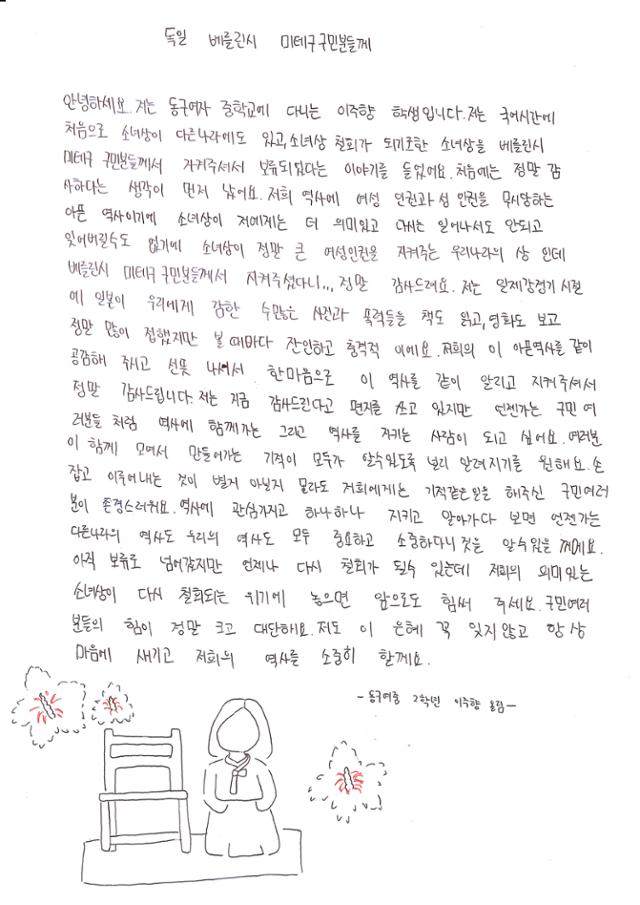 독일 베를린시 미테구 구민분들께
안녕하세요. 저는 동구여자 중학교에 다니는 이주향 학생입니다. 저는 국어시간에
처음으로 소녀상이 다른나라에도 있고, 소녀상 철회가 되기로한 소녀상을 베를린시
미테구 구민분들께서 지켜주셔서 보류되었다는 이야기를 들었어요. 처음에는 정말 감
사하다는 생각이 먼저 났어요. 저희 역사에 여성 인권과 성 인권을 무시당하는
아픈 역사이기에 소녀상이 저에게는 더 의미있고 다시는 일어나서도 안되고
잊어버릴수도 없기에 소녀상이 정말 큰 여성인권을 지켜주는 우리나라의 상 인데
베를린시 미테구 구민분들께서 지켜주셨다니... 정말 감사드려요. 저는 일제강점기 시절
에 일본이 우리에게 감한 수많은 사건과 폭력들을 책도 읽고, 영화도 보고
정말 많이 접했지만 볼 때마다 잔인하고 충격적 이에요. 저희의 이 아픈역사를 같이
공감해 주시고 선뜻 나서서 한마음으로 이 역사를 같이 알리고 지켜주셔서
정말 감사드립니다. 저는 지금 감사드린다고 편지를 쓰고 있지만 언젠가는 구민 여
러분들 처럼 역사에 함께가는 그리고 역사를 지키는 사람이 되고 싶어요. 여러분
이 함께 모여서 만들어가는 기적이 모두가 알수있도록 널리 알려지기를 원해요. 손
잡고 이루어내는 것이 별게 아닐지 몰라도 저희에게는 기적같은일을 해주신 구민여러
분이 존경스러워요. 역사에 관심가지고 하나하나 지키고 알아가다 보면 언젠가는
다른나라의 역사도 우리의 역사도 모두 중요하고 소중하다니 것을 알수있을 꺼에요.
아직 보류로 넘어갔지만 언제나 다시 철회가 될수 있는데 저희의 의미있는
소녀상이 다시 철회되는 위기에 놓으면 앞으로도 힘써 주세요. 구민여러
분들의 힘이 정말 크고 대단해요. 저도 이 은혜 꼭 잊지않고 항상
마음에 새기고 저희의 역사를 소중히 할께요.
- 동구여중 2학년 이주향 올림 -